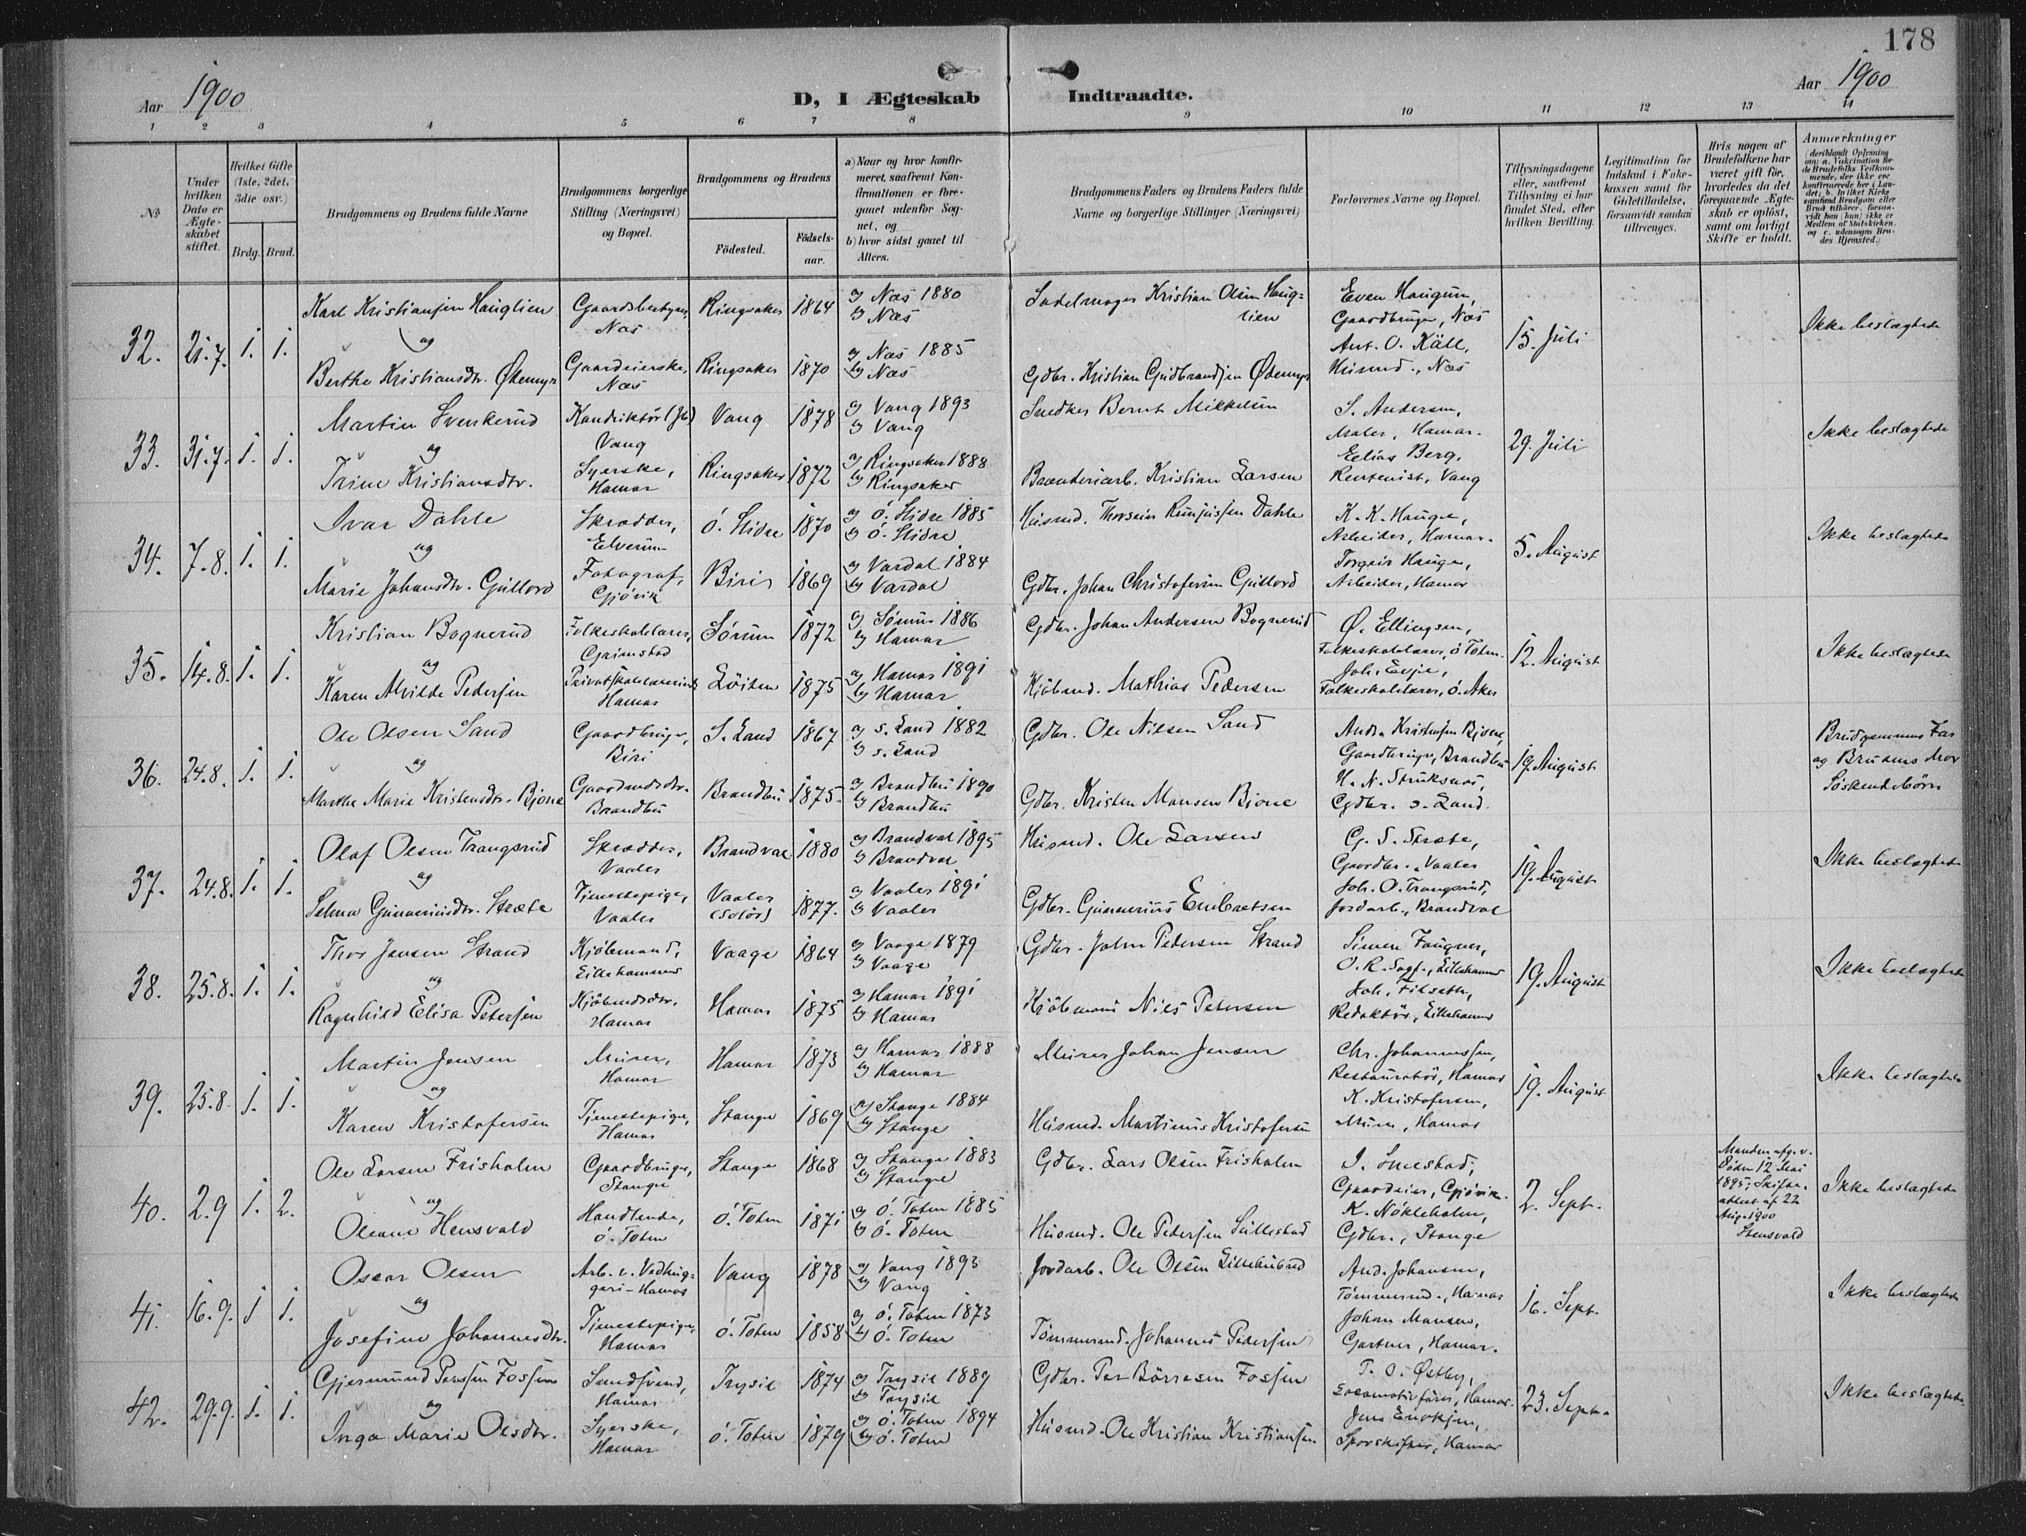 178
Aar 1900
D, I Ægteskab Indtraadte.
Aar 1900
1 2 3 4 5 6 7 8 9 10 11 12 13 14
№
Under hvilken Dato er Ægteskabet stiftet.
Hvilket Gifte (1ste, 2det, 3die osv.)
Brdg. Brud.
Brudgommens og Brudens fulde Navne
Brudgommens borgerlige Stilling (Næringsvei) og Bopæl.
Brudgommens og Brudens
Fødested.
Fødselsaar.
a) Naar og hvor konfirmeret, saafremt Konfirmationen er foregaaet udenfor Sognet, og
b) hvor sidst gaaet til Alters.
Brudgommens Faders og Brudens Faders fulde Navne og borgerlige Stillinger (Næringsvei)
Forlovernes Navne og Bopæl.
Tillysningsdagene eller, saafremt Tillysning ei har fundet Sted, efter hvilken Bevilling.
Legitimation for Indskud i Enkekassen samt for Giftetilladelse, forsaavidt saadan tiltrænges.
Hvis nogen af Brudefolkene har været gift før, hvorledes da det foregaaende Ægteskab er opløst, samt om lovligt Skifte er holdt.
Anmærkninger
(deriblandt Oplysning om: a. Vaccination for de Brudefolks Vedkommende, der ikke ere konfirmerede her i Landet; b. hvilket Kirkesamfund Brudgom eller Brud tilhører, forsaavidt han (hun) ikke er Medlem af Statskirken, og c. udensogns Brudes Hjemsted.)
32. 21.7. 1. 1.
Karl Kristiansen Hauglien
Gaardsbestyrer Næs
Ringsaker 1864
a) Næs 1880
b) Næs
Sadelmager Kristian Olsen Hauglien
Even Haugum,
Gaardbruger, Næs
15. Juli
Ikke beslægtede
og
Berthe Kristiansdtr. Ødemyr
Gaardeierske, Næs
Ringsaker 1870
a) Næs 1885
b) Næs
Gdbr. Kristian Gudbrandsen Ødemyr
Ant. O. Käll,
Husmd., Næs
33. 31.7. 1. 1.
Martin Svenkerud
Vang
Vang 1878
a) Vang 1893
b) Vang
Snedker Bernt Mikkelsen
S. Andersen,
Maler, Hamar.
29. Juli
Ikke beslægtede
og
Trine Kristiansdtr.
Syerske, Hamar
Ringsaker 1872
a) Ringsaker 1888
b) Ringsaker
Brænderiarb. Kristian Larsen
Elias Berg,
Rentenist, Vang
34. 7.8. 1. 1.
Ivar Dahle
Skrædder, Elverum
Ö. Slidre 1870
a) Ö. Slidre 1885
b) Ö. Slidre
Husmd. Thorstein Dahle
K. K. Hauge,
Arbeider, Hamar.
5. August
Ikke beslægtede
og
Marie Johansdtr. Gullord
Fotograf, Gjøvik
Biri 1869
a) Vardal 1884
b) Vardal
Gdbr. Johan Christofersen Gullord
Torgeir Hauge,
Arbeider, Hamar
35. 14.8. 1. 1.
Kristian Bognerud
Folkeskolelærer, Grimstad
Sørum 1872
a) Sørum 1886
b) Hamar
Gdbr. Johan Andersen Bognerud
Ø. Ellingsen,
Folkeskolelærer, Ö Toten.
12. August
Ikke beslægtede
og
Karen Alvilde Pedersen
Privatskolelærerinde Hamar
Löiten 1875
a) Hamar 1891
b) Hamar
Kjöbmd. Mathias Pedersen
Joh. Evje,
Folkeskolelærer, Ö. Aker
36. 24.8. 1. 1.
Ole Olsen Sand
Gaardbruger, Biri
S. Land 1867
a) S. Land 1882
b) S. Land
Gdbr. Ole Nilsen Sand
Andr. Kristensen Bjone,
Gaardbruger, Brandbu
19. August
Brudgommens Far og Brudens Mor Söskendebörn
og
Marthe Marie Kristensdtr. Bjone
Gaardmdsdtr. Brandbu
Brandbu 1875.
a) Brandbu 1890
b) Brandbu
Gdbr. Kristen Hansen Bjone
H. N. Struksnæs,
Gdbr. S. Land.
37. 24.8. 1. 1.
Olaf Olsen Trangsrud
Skrædder, Vaaler
Brandval 1880
a) Brandval 1895
b) Brandval
Husmd. Ole Larsen
G. S. Stræte,
Gaardbr., Vaaler
19. August
Ikke beslægtede
og
Selma Gunneriusdtr. Stræte
Tjenestepige, Vaaler
Vaaler (Solör) 1877.
a) Vaaler 1891
b) Vaaler
Gdbr. Gunnerius Embretsen
Joh. O. Trangsrud,
Jordarb., Brandval
38. 25.8. 1. 1.
Thor Jansen Strand
Kjöbmand, Lillehammer
Vaage 1864
a) Vaage 1879
b) Vaage
Gdbr. John Pedersen Strand
Simen Fougner,
O. R. Sagf., Lillehammer
19. August
Ikke beslægtede
og
Ragnhild Elisa Petersen
Kjöbmdsdtr. Hamar
Hamar 1875
a) Hamar 1891
b) Hamar
Kjöbmand Niels Petersen
Joh. Filseth,
Redaktör, Lillehammer
39. 25.8. 1. 1.
Martin Jensen
Murer, Hamar
Hamar 1873
a) Hamar 1888
b) Hamar
Murer Johan Jensen
Chr. Johannessen,
Restauratör, Hamar
19. August
Ikke beslægtede
og
Karen Kristofersen
Tjenestepige, Hamar
Stange 1869
a) Stange 1884
b) Stange
Husmd. Martinus Kristofersen
K. Kristofersen,
Murer, Hamar
40. 2.9 1. 2.
Ole Larsen Frisholm
Gaardbruger, Stange
Stange 1868
a) Stange 1883
b) Stange
Gdbr. Lars Olsen Frisholm
J. Smestad,
Gaardeier, Gjövik.
2. Sept.
Manden afg. v. Döden 12 Mai 1895; Skifteattest af 22 Aug. 1900 Stensvold
Ikke beslægtede
og
Oleane Hensvold
Handlende, Ö. Toten
Ö. Toten 1871
a) Ö. Toten 1885
b) Ö. Toten
Husmd. Ole Pedersen Sullestad
K. Nökleholm,
Gdbr., Stange
41. 16.9. 1 1.
Oscar Olsen
Arb. v. Hamar
Vang 1878
a) Vang 1893
b) Vang
Jordarb. Ole Olsen Lillehubred
And. Johansen,
Tömmermd., Hamar
16. Sept.
Ikke beslægtede
og
Josefine Johannesdtr.
Tjenestepige, Hamar
Ö. Toten 1858
a) Ö. Toten 1873
b) Ö. Toten
Tömmermd. Johannes Pedersen
Johan Hansen,
Gartner, Hamar.
42. 29.9. 1. 1.
Gjermund Persen Fossen
Smedsvend, Hamar
Trysil 1874
a) Trysil 1889
b) Trysil
Gdbr. Per Börresen Fossen
P. O. Østby,
Locomotivförer, Hamar.
23. Sept.
Ikke beslægtede
og
Inga Marie Olsdtr.
Syerske, Hamar
Ö. Toten 1879
a) Ö. Toten 1894
b) Ö. Toten
Husmd. Ole Kristian Kristiansen
Jens Enoksen,
Sporskifter, Hamar